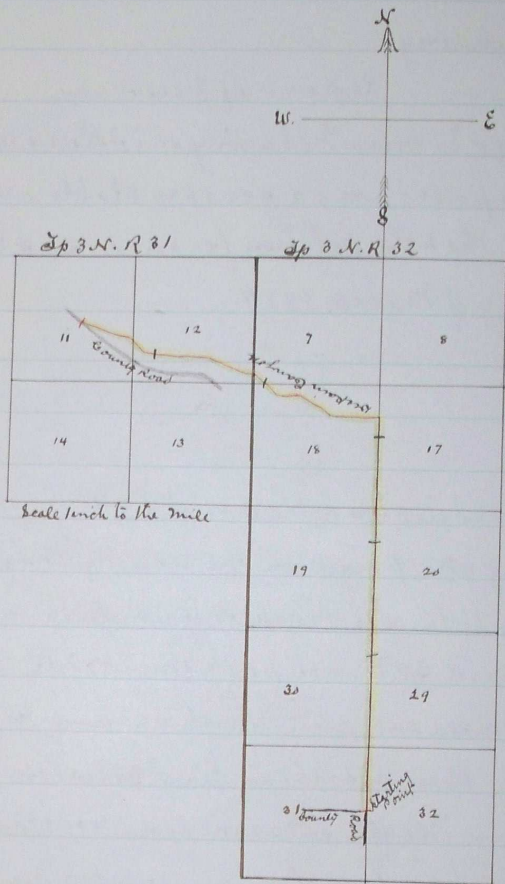 N
W. E
S
Tp 3 N. R 31 Tp 3 N. R 32
11 12 7 8
County Road
Canyon
14 13 18 17
Scale 1 inch to the Mile
19 20
30 29
31 County Road Starting Point 32